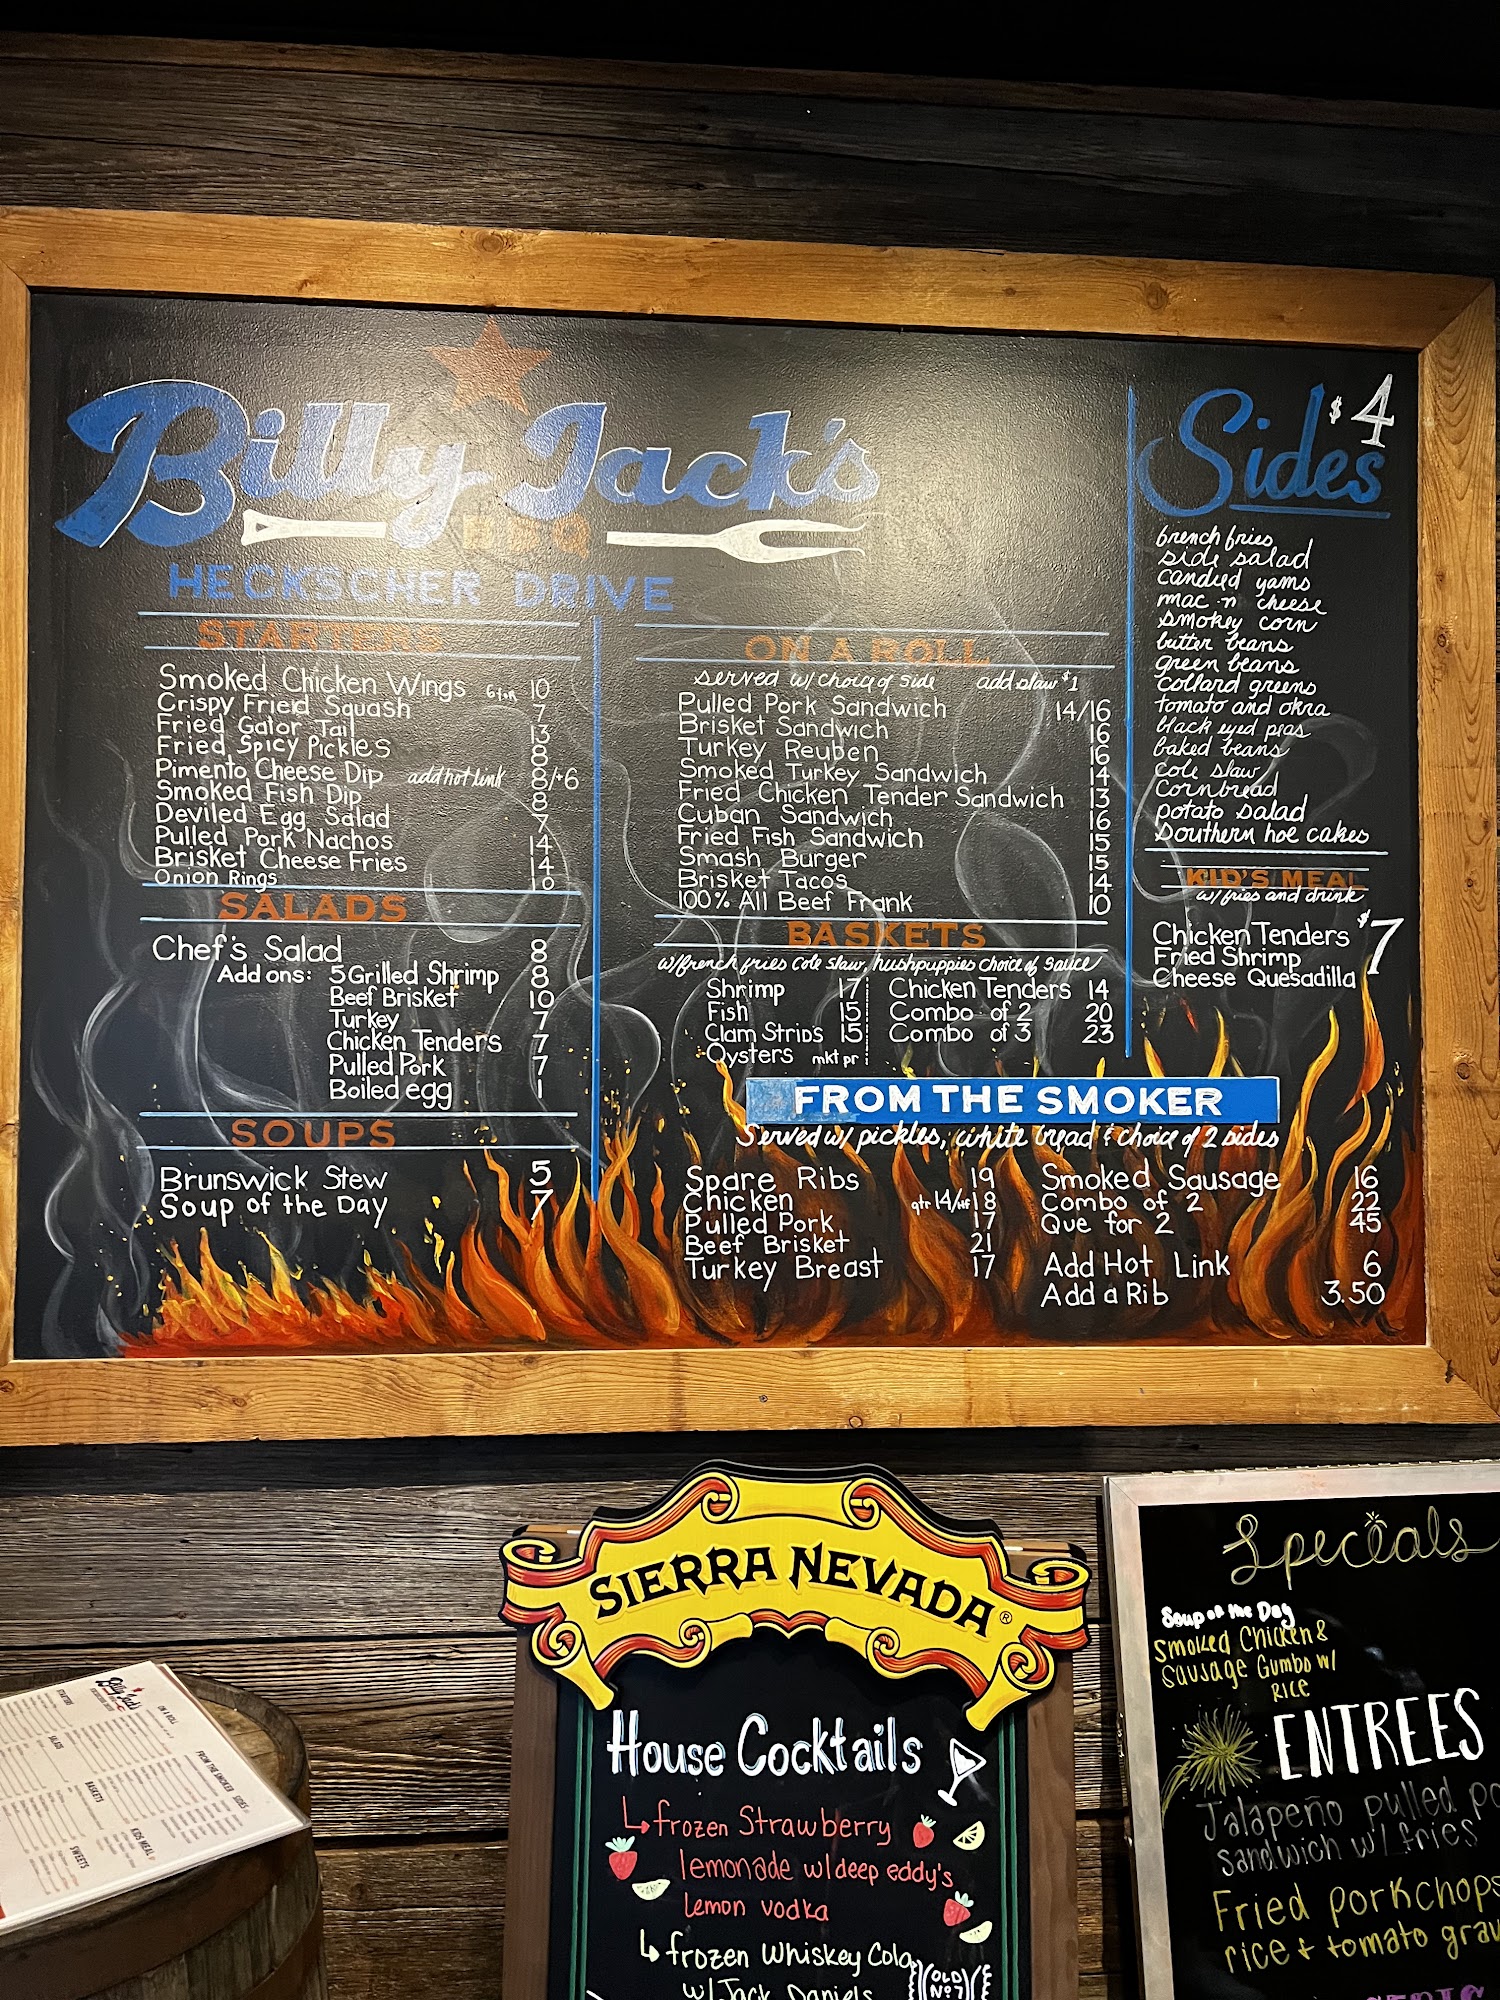 Billy Jack's
BBQ
HECKSCHER DRIVE
STARTERS
Smoked Chicken Wings 10
Crispy Fried Squash 7
Fried Gator Tail 13
Fried Spicy Pickles 8
Pimento Cheese Dip add hot link 8/+6
Smoked Fish Dip 8
Deviled Egg Salad 7
Pulled Pork Nachos 14
Brisket Cheese Fries 14
Onion Rings 10
SALADS
Chef's Salad 8
Add ons: 5 Grilled Shrimp 8
Beef Brisket 10
Turkey 7
Chicken Tenders 7
Pulled Pork 7
Boiled egg 1
SOUPS
Brunswick Stew 5
Soup of the Day 7
ON A ROLL
served w/ choice of side add slaw $1
Pulled Pork Sandwich 14/16
Brisket Sandwich 16
Turkey Reuben 16
Smoked Turkey Sandwich 14
Fried Chicken Tender Sandwich 13
Cuban Sandwich 16
Fried Fish Sandwich 15
Smash Burger 15
Brisket Tacos 14
100% All Beef Frank 10
BASKETS
w/french fries Cole slaw, hushpuppies choice of sauce
Shrimp 17 Chicken Tenders 14
Fish 15 Combo of 2 20
Clam Strips 15 Combo of 3 23
Oysters mkt pr
FROM THE SMOKER
Served w/ pickles, white bread & choice of 2 sides
Spare Ribs 19
Chicken qtr 14/HF 18
Pulled Pork 17
Beef Brisket 21
Turkey Breast 17
Smoked Sausage 16
Combo of 2 22
Que for 2 45
Add Hot Link 6
Add a Rib 3.50
Sides $4
french fries
side salad
candied yams
mac n cheese
smokey corn
butter beans
green beans
collard greens
tomato and okra
black eyed peas
baked beans
cole slaw
cornbread
potato salad
southern hoe cakes
KID'S MEAL
w/fries and drink
$7
Chicken Tenders
Fried Shrimp
Cheese Quesadilla
SIERRA NEVADA®
House Cocktails
frozen Strawberry
lemonade w/deep eddy's
lemon vodka
frozen Whiskey Cola
w/Jack Daniels
OLD
No 7
Specials
Soup of the Day
Smoked Chicken &
Sausage Gumbo w/
Rice
ENTREES
Jalapeño pulled
Sandwich w/ fries
Fried porkchops
rice + tomato
Billy Jack's
STARTERS
SALADS
ON A ROLL
BASKETS
FROM THE SMOKER
SIDES
KIDS MEAL
SWEETS